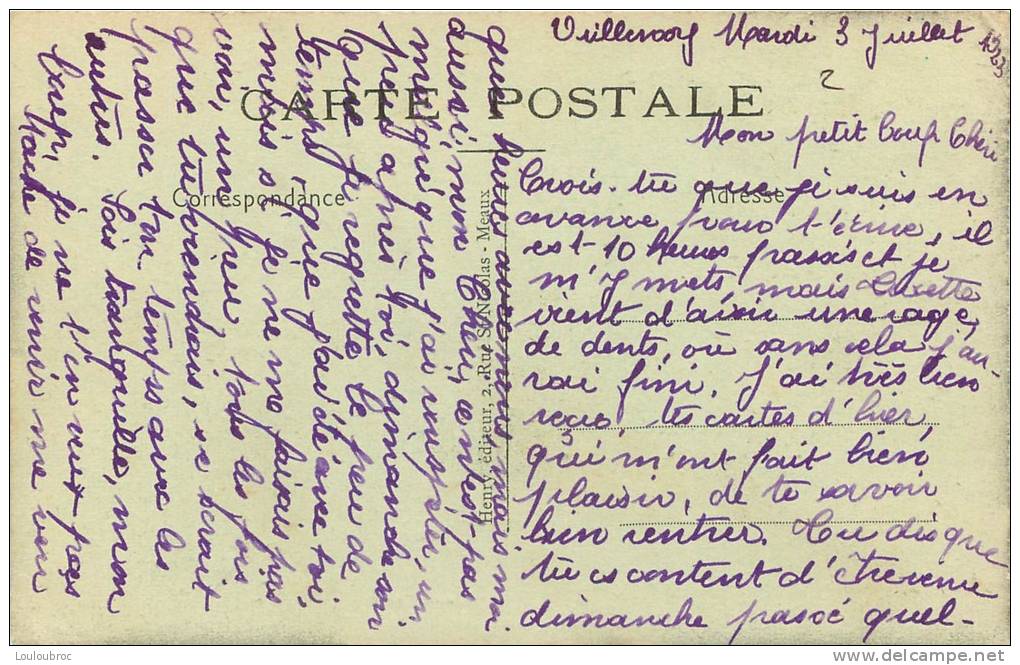 Villeroy Mardi 3 Juillet
1923
2
CARTE POSTALE
Mon petit Coup Chéri
Correspondance
Adresse
Crois-tu que je suis en
avance pour t'écrire, il
est 10 heures passés et je
m'y mets, mais Lucette
vient d'avoir une rage
de dents, où sans cela j'au-
rai fini. J'ai très bien
reçu, tes cartes d'hier,
qui m'ont fait bien
plaisir, de te savoir
bien rentrer. Tu dis que
tu es content d'être venu
dimanche passé quel-
ques heures avec nous, mais moi
aussi mon Chéri, ce n'est pas
malgré que j'ai rouspéter, un
peu après toi, dimanche soir
que je regrette le peu de
temps, que j'ai été avec toi,
mais si je ne me faisais pas
voir, un peu, tous les fois
que tu viendrais, se serait
passer ton temps avec les
autres. Sois tranquille, mon
Coup, je ne t'en veux pas
tâche de venir me voir
Henry, éditeur, 2, Rue St-Nicolas - Meaux
Louloubroc
http://www.delcampe.net